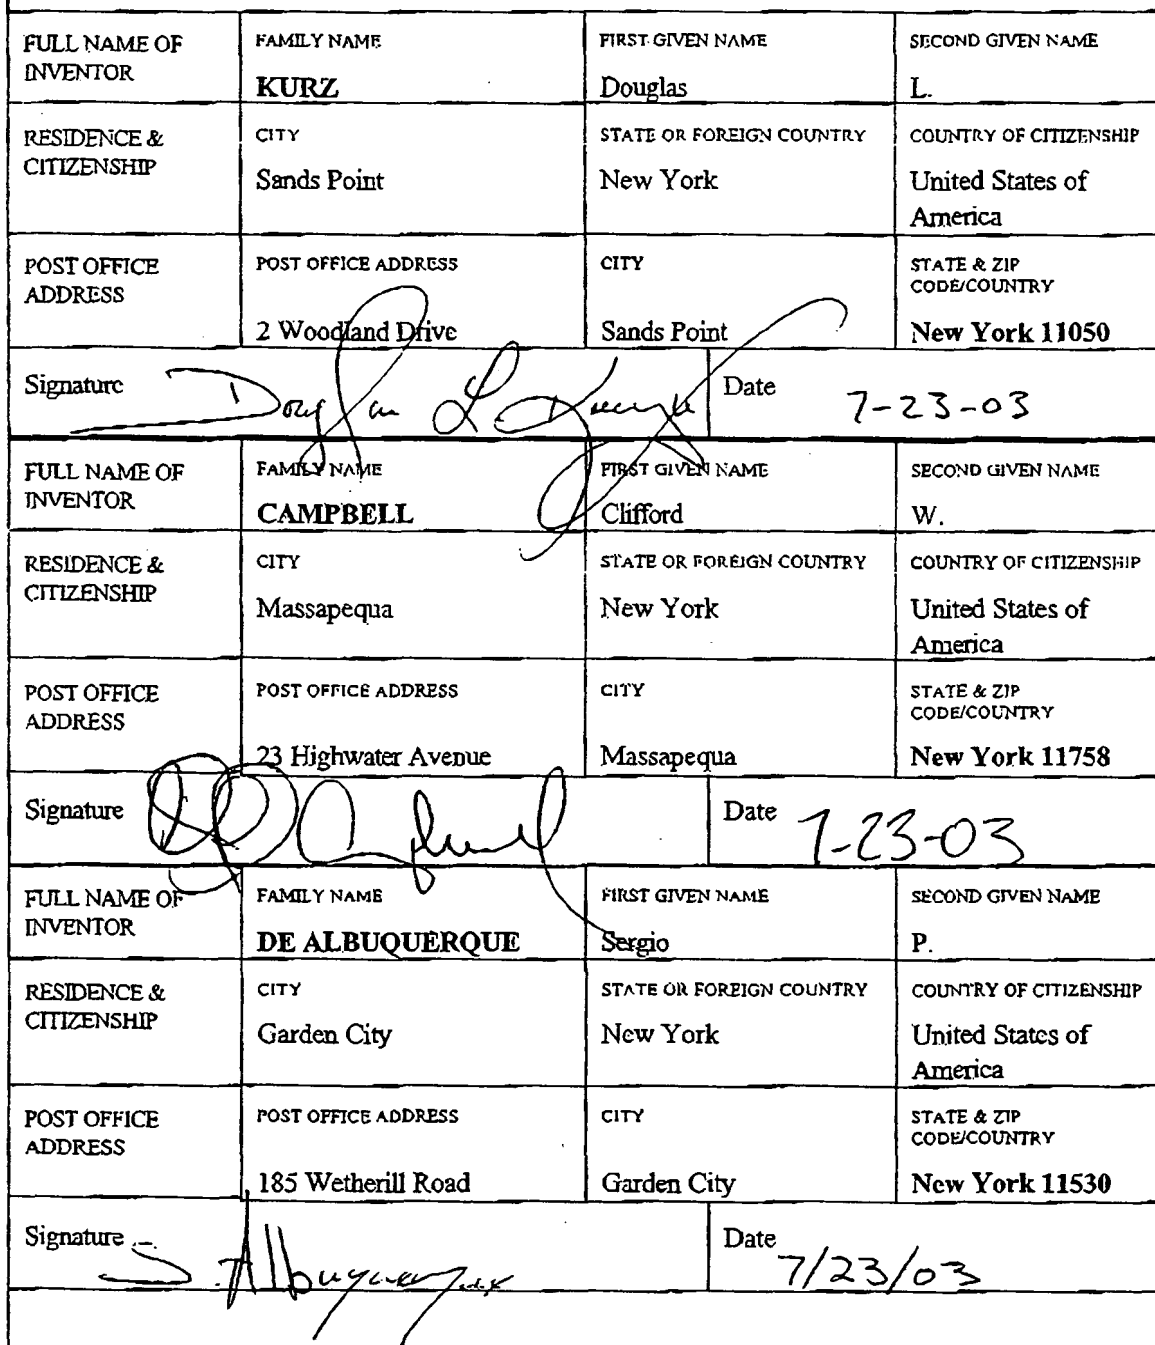 FULL NAME OF INVENTOR
FAMILY NAME
KURZ
FIRST GIVEN NAME
Douglas
SECOND GIVEN NAME
L.
RESIDENCE &
CITIZENSHIP
CITY
Sands Point
STATE OR FOREIGN COUNTRY
New York
COUNTRY OF CITIZENSHIP
United States of
America
POST OFFICE
ADDRESS
POST OFFICE ADDRESS
2 Woodland Drive
CITY
Sands Point
STATE & ZIP
CODE/COUNTRY
New York 11050
Signature
Douglas L Kurz
Date
7-23-03
FULL NAME OF
INVENTOR
FAMILY NAME
CAMPBELL
FIRST GIVEN NAME
Clifford
SECOND GIVEN NAME
W.
RESIDENCE &
CITIZENSHIP
CITY
Massapequa
STATE OR FOREIGN COUNTRY
New York
COUNTRY OF CITIZENSHIP
United States of
America
POST OFFICE
ADDRESS
POST OFFICE ADDRESS
23 Highwater Avenue
CITY
Massapequa
STATE & ZIP
CODE/COUNTRY
New York 11758
Signature
Date
7-23-03
FULL NAME OF
INVENTOR
FAMILY NAME
DE ALBUQUERQUE
FIRST GIVEN NAME
Sergio
SECOND GIVEN NAME
P.
RESIDENCE &
CITIZENSHIP
CITY
Garden City
STATE OR FOREIGN COUNTRY
New York
COUNTRY OF CITIZENSHIP
United States of
America
POST OFFICE
ADDRESS
POST OFFICE ADDRESS
185 Wetherill Road
CITY
Garden City
STATE & ZIP
CODE/COUNTRY
New York 11530
Signature
Date
7/23/03